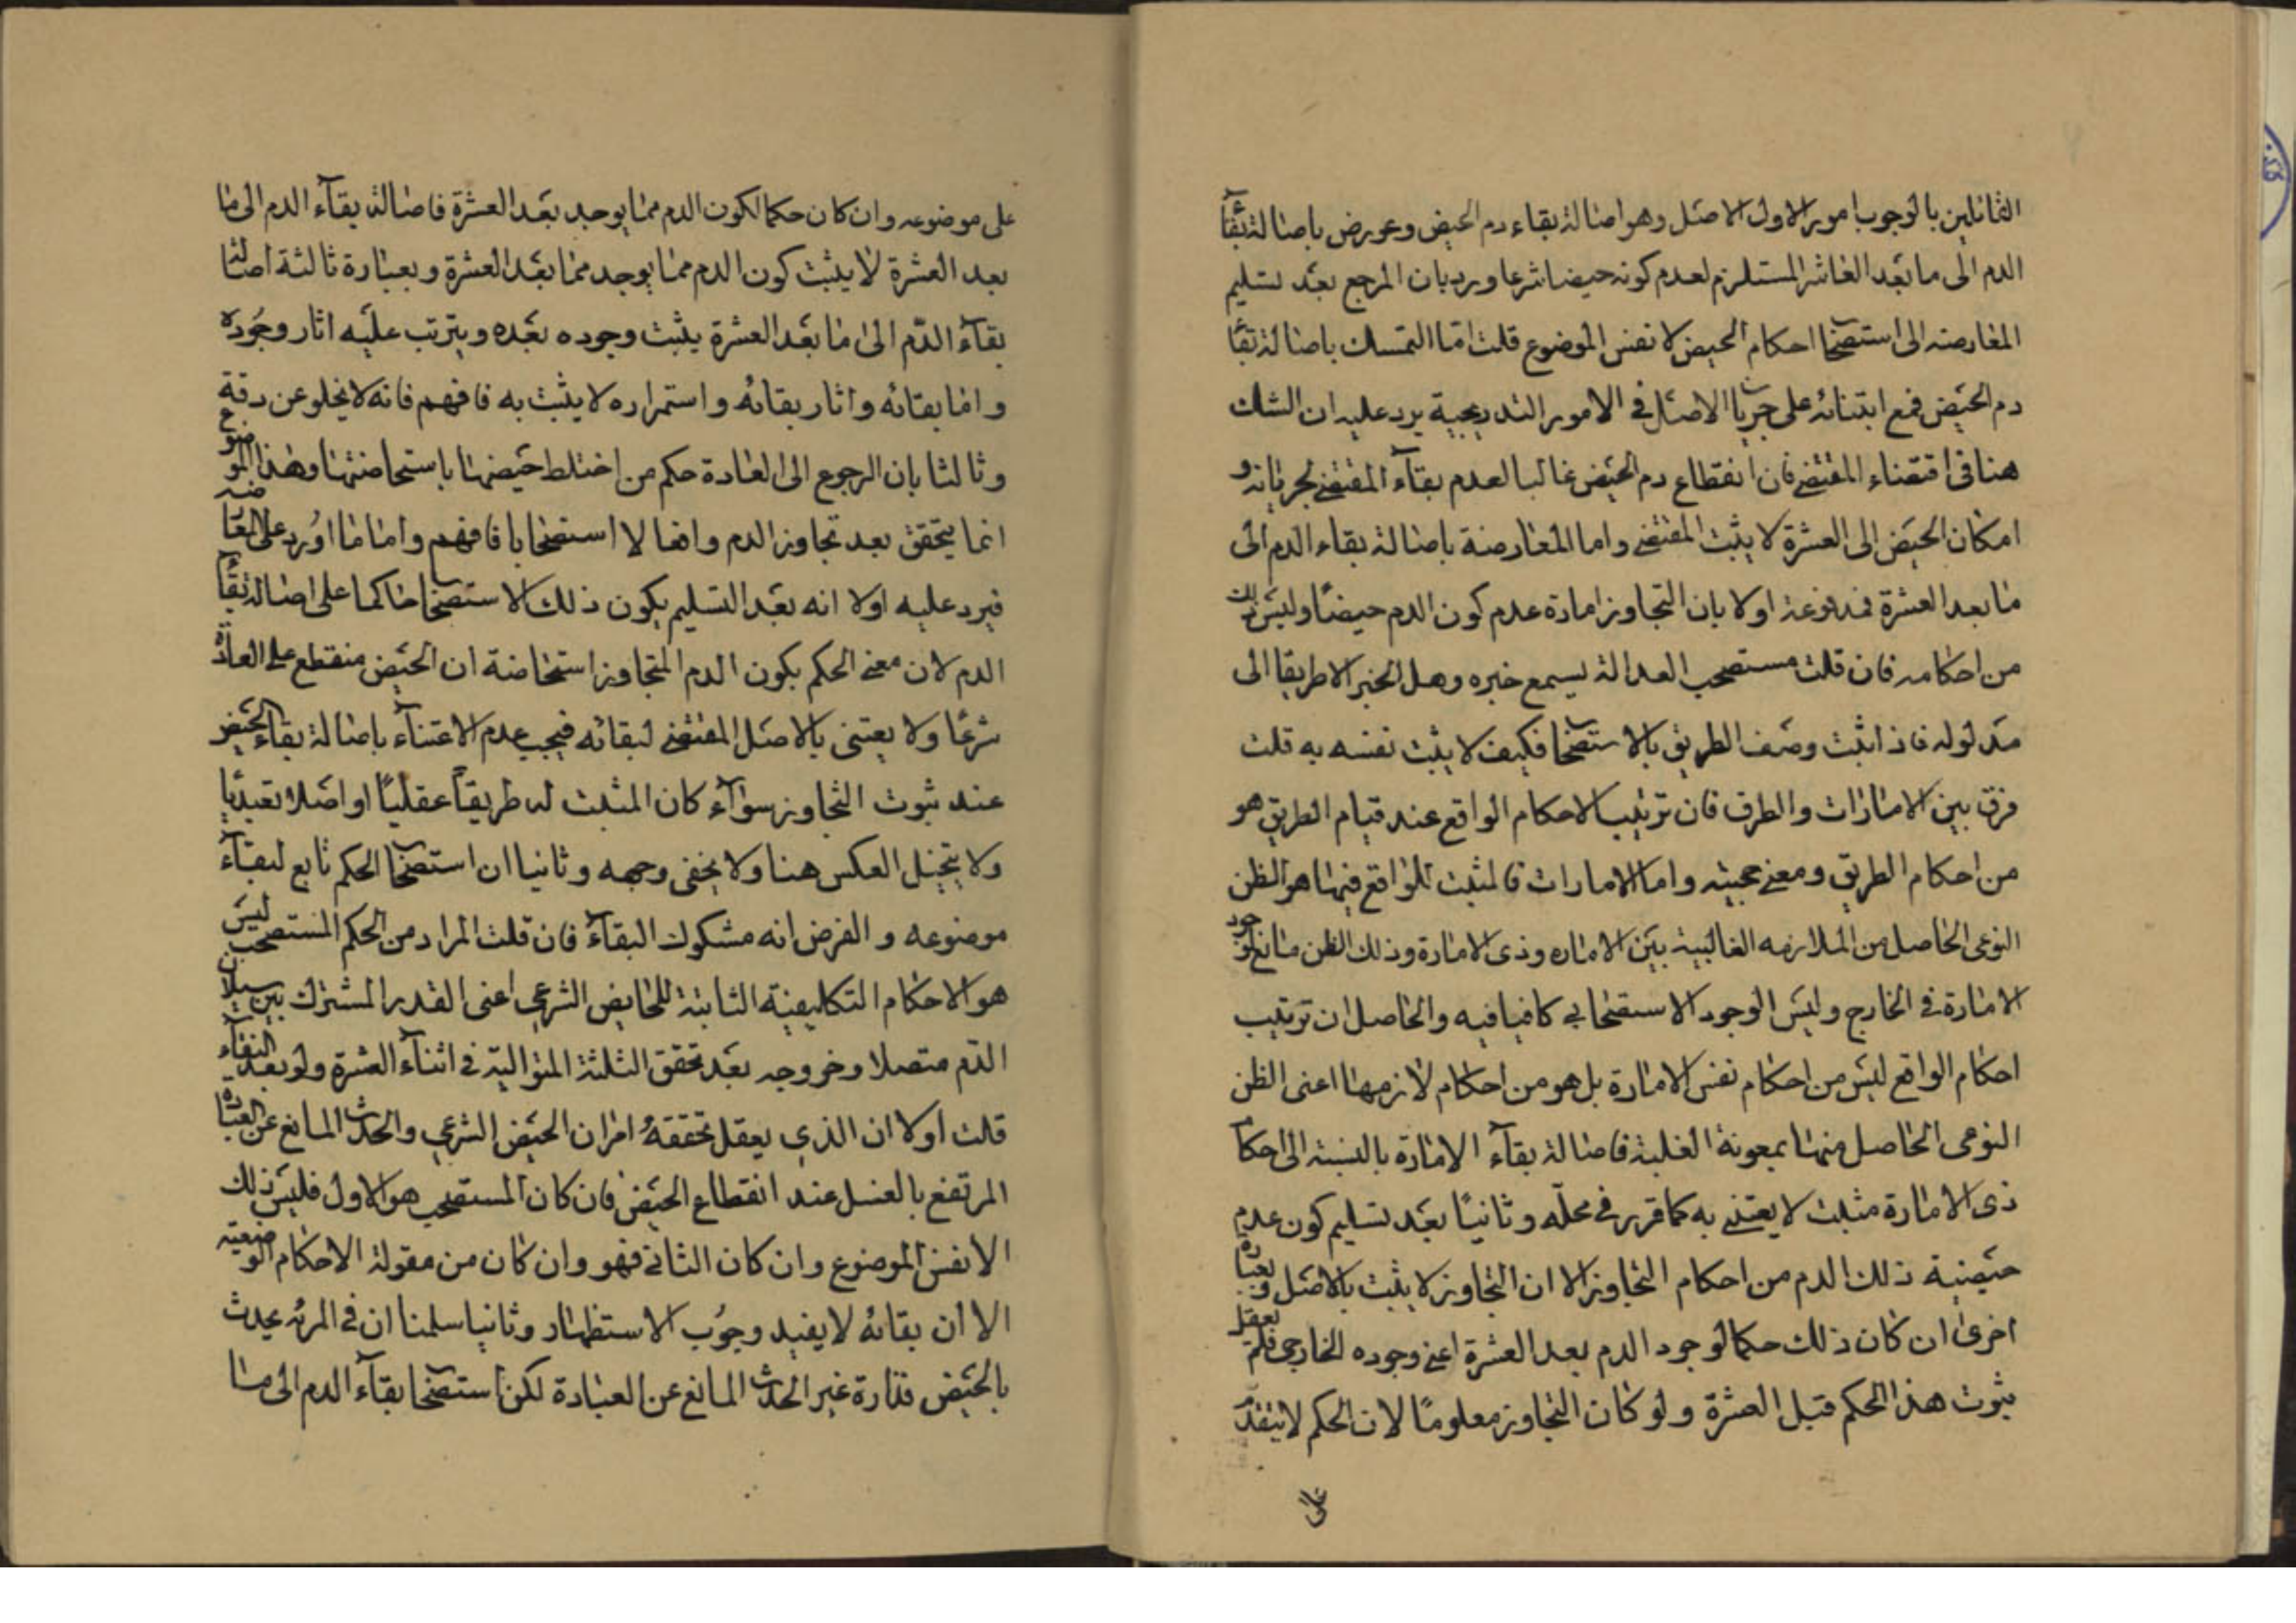 القائلين بالوجوب امور الاول الاصل وهو اصالة بقاء دم الحيض وعورض باصالة بقآء
الدم الى ما بعد العاشر المستلزم لعدم كونه حيضا شرعا ورد بان المرجع بعد تسليم
المعارضه الى استصحاب احكام الحيض لا نفس الموضوع قلت اما التمسك باصالة بقآء
دم الحيض فمع ابتنائه على جريان الاصل في الامور التدريجية يرد عليه ان الشك
هنا في اقتضاء المقتضي فان انقطاع دم الحيض غالبا لعدم بقآء المقتضي لجريانه و
امكان الحيض الى العشرة لا يثبت المقتضي واما المعارضة باصالة بقاء الدم الى
ما بعد العشرة فمدفوعة اولا بان التجاوز امارة عدم كون الدم حيضا وليس ذلك
من احكامه فان قلت مستصحب العدالة يسمع خبره وهل الخبر الا طريقا الى
مدلوله فاذا ثبت وصف الطريق بالاستصحاب فكيف لا يثبت نفسه به قلت
فرق بين الامارات والطرق فان ترتيب الاحكام الواقع عند قيام الطريق هو
من احكام الطريق ومعنى حجيته واما الامارات فالمثبت للواقع فيها هو الظن
النوعى الحاصل من الملازمه الغالبية بين الاماره وذى الامارة وذلك الظن مانع لوجود
الامارة في الخارج وليس الوجود الاستصحابي كافيا فيه والحاصل ان ترتيب
احكام الواقع ليس من احكام نفس الامارة بل هو من احكام لازمها اعنى الظن
النوعى الحاصل منها بمعونة الغلبة فاصالة بقآء الامارة بالنسبة الى احكام
ذى الامارة مثبت لا يعتنى به كما قرر في محله وثانيا بعد تسليم كون عدم
حيضية ذلك الدم من احكام التجاوز الا ان التجاوز لا يثبت بالاصل وبعبارة
اخرى ان كان ذلك حكما لوجود الدم بعد العشرة اعنى وجوده الخارجى فلم يعقل
ثبوت هذا الحكم قبل العشرة ولو كان التجاوز معلوما لان الحكم لا يتقدم
على
على موضوعه وان كان حكما لكون الدم مما يوجد بعد العشرة فاصالة بقآء الدم الى ما
بعد العشرة لا يثبت كون الدم مما يوجد مما بعد العشرة وبعبارة ثالثة اصالة
بقآء الدّم الى ما بعد العشرة يثبت وجوده بعده ويترتب عليه اثار وجوده
واما بقائه واثار بقائه واستمراره لا يثبت به فافهم فانه لا يخلو عن دقة
وثالثا بان الرجوع الى العادة حكم من اختلط حيضها باستحاضتها وهذا الموضوع
انما يتحقق بعد تجاوز الدم واقعا لا استصحابا فافهم واما ما اورد على المعارضه
فيرد عليه اولا انه بعد التسليم يكون ذلك الاستصحاب حاكما على اصالة بقآء
الدم لان معنى الحكم بكون الدم المتجاوز استحاضة ان الحيض منقطع على العادة
شرعًا ولا يعتنى بالاصل المقتضي لبقائه فيجب عدم الاعتناء باصالة بقاء الحيض
عند ثبوت التجاوز سوآء كان المثبت له طريقاً عقليًا او اصلا تعبديا
ولا يتخيل العكس هنا ولا يخفى وجهه وثانيا ان استصحاب الحكم تابع لبقآء
موضوعه والفرض انه مشكوك البقآء فان قلت المراد من الحكم المستصحب ليس
هو الاحكام التكليفية الثابتة للحايض الشرعي اعنى القدر المشترك بين سيلان
الدّم متصلا وخروجه بعد تحقق الثلثة المتوالية في اثنآء العشرة ولو بعد النقآء
قلت اولا ان الذي يعقل تحققهُ امران الحيض الشرعي والحدث المانع عن العبادة
المرتفع بالغسل عند انقطاع الحيض فان كان المستصحب هو الاول فليس ذلك
الا نفس الموضوع وان كان الثاني فهو وان كان من مقولة الاحكام الوضعيّه
الا ان بقائهُ لا يفيد وجوب الاستظهار وثانيا سلمنا ان في المرئه يحدث
بالحيض قذارة غير الحدث المانع عن العبادة لكن استصحاب بقآء الدم الى ما